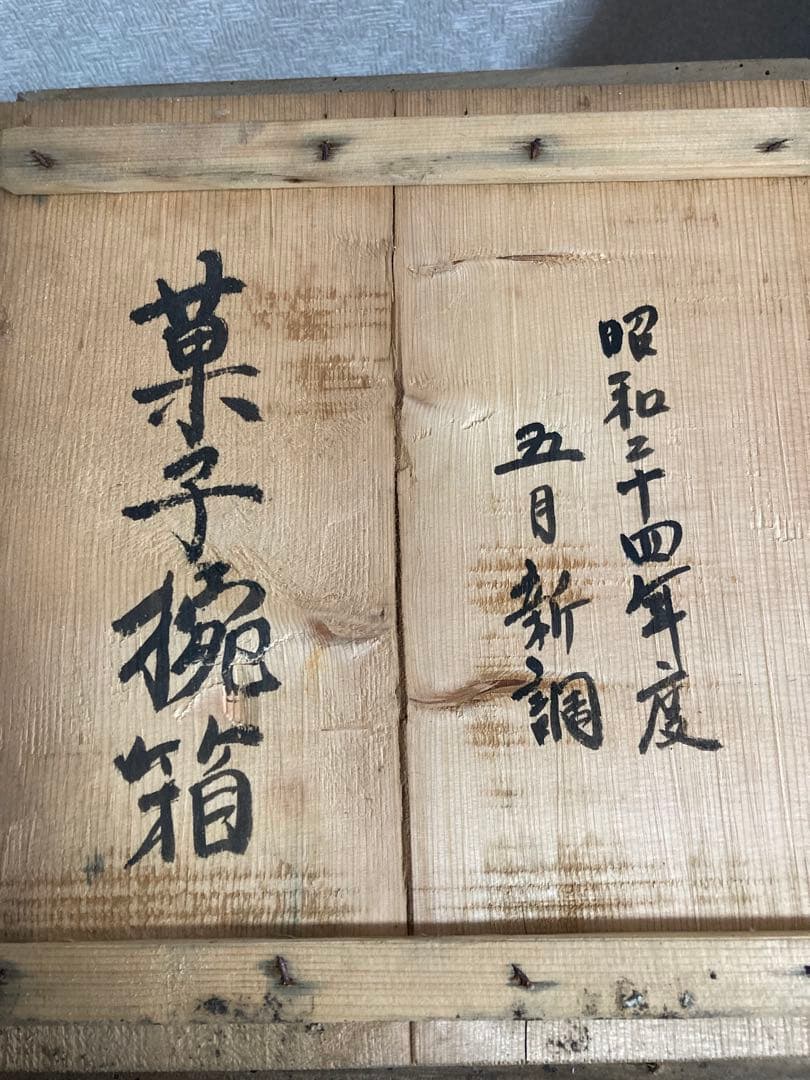 昭和二十四年度
五月新調
菓子椀箱